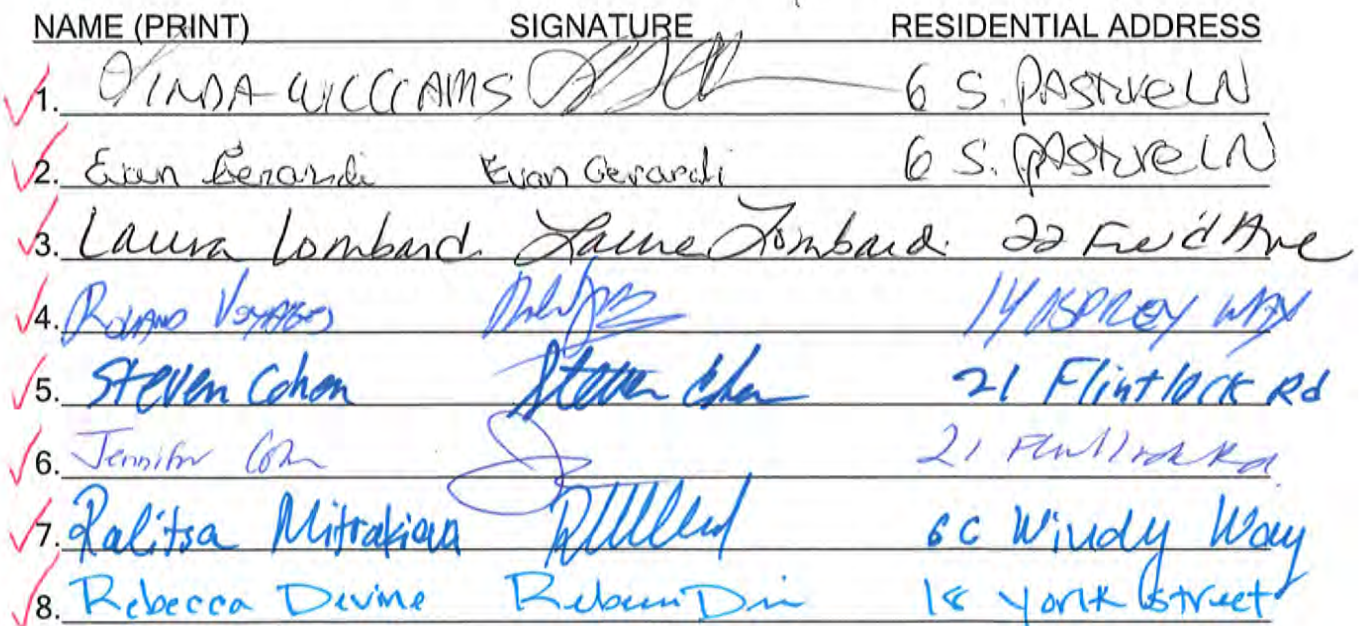 NAME (PRINT) SIGNATURE RESIDENTIAL ADDRESS
1. LINDA WILLIAMS 6 S. PASTURE LN
2. Evan Gerardi Evan Gerardi 6 S. PASTURE LN
3. Laura Lombard Laura Lombard 22 Ave
4. 14 OSPREY WAY
5. Steven Cohen Steven Cohen 21 Flintlock Rd
6. Jennifer 21 Flintlock Rd
7. Ralitsa 6C Windy Way
8. Rebecca Devine 18 York street